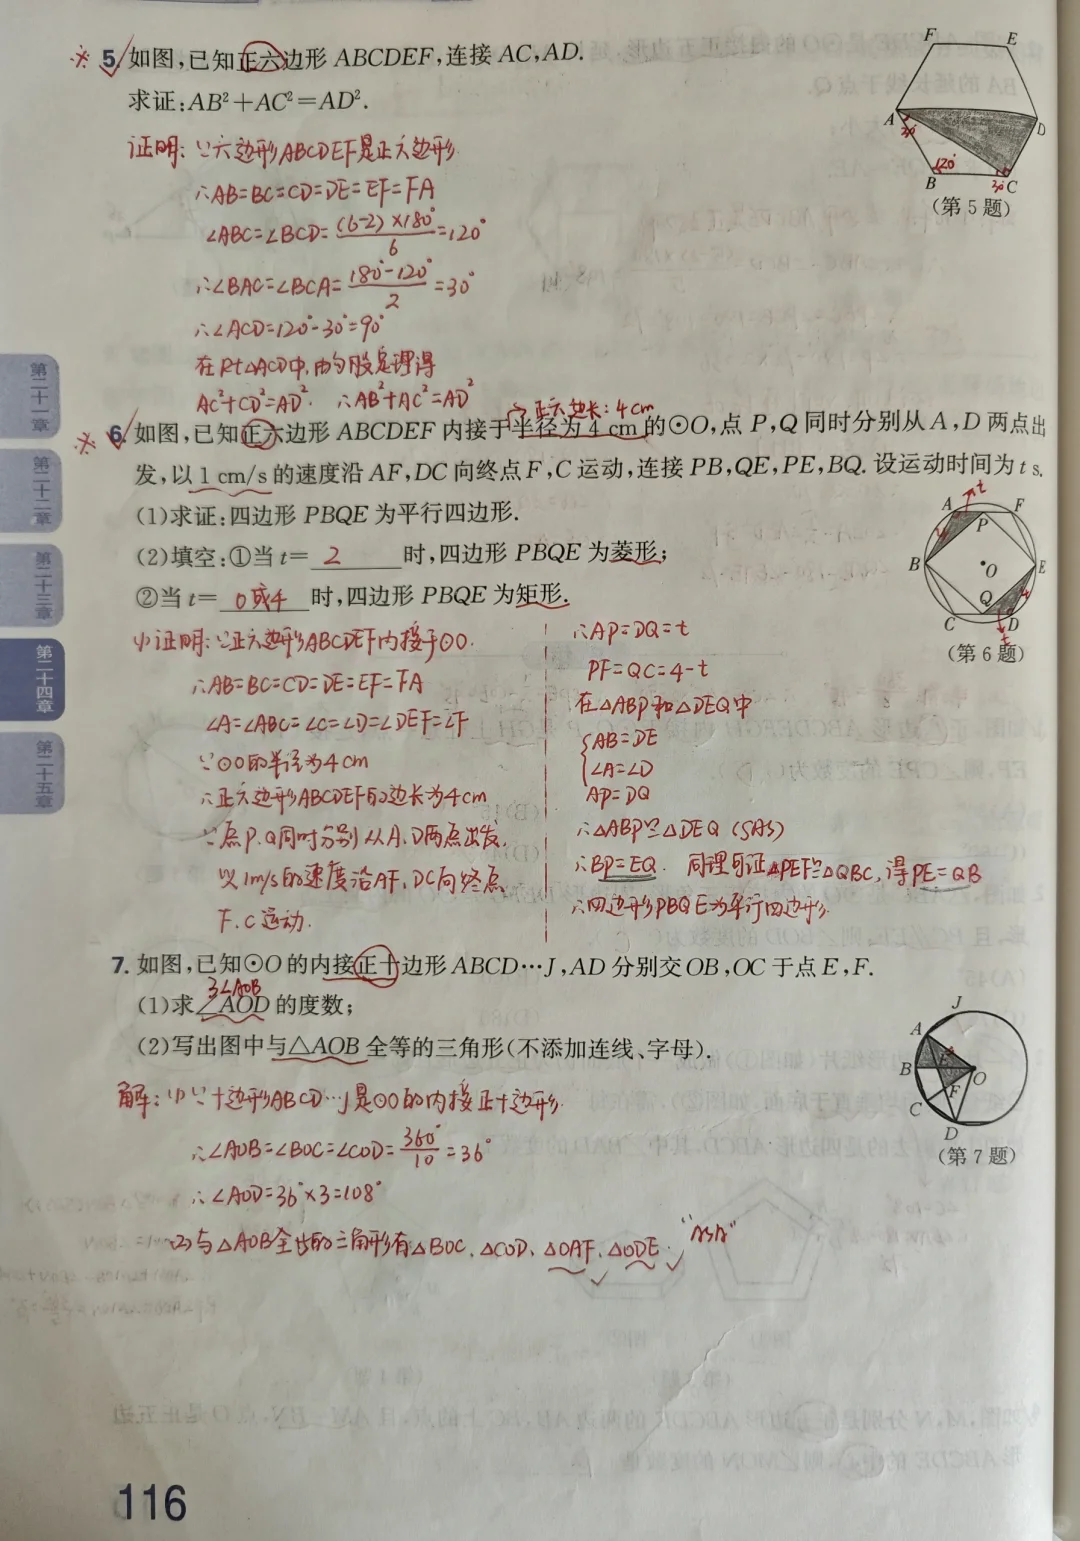 ※ 5. 如图,已知正六边形 ABCDEF,连接 AC,AD.
求证:AB²+AC²=AD².
证明: ∵六边形ABCDEF是正六边形.
∴AB=BC=CD=DE=EF=FA
∠ABC=∠BCD=(6-2)×180°/6=120°
∴∠BAC=∠BCA=180°-120°/2=30°
∴∠ACD=120°-30°=90°
在Rt△ACD中,由勾股定理得
AC²+CD²=AD². ∴AB²+AC²=AD²
F E
A D
30°
120°
B 30° C
(第5题)
正六边长:4cm
※ 6. 如图,已知正六边形 ABCDEF 内接于半径为 4 cm 的⊙O,点 P,Q 同时分别从 A,D 两点出
发,以 1 cm/s 的速度沿 AF,DC 向终点 F,C 运动,连接 PB,QE,PE,BQ. 设运动时间为 t s.
(1)求证:四边形 PBQE 为平行四边形.
(2)填空:①当 t= 2 时,四边形 PBQE 为菱形;
②当 t= 0或4 时,四边形 PBQE 为矩形.
A t F
P
4
B O E
Q 4
C D
t
(第6题)
(1)证明:∵正六边形ABCDEF内接于⊙O.
∴AB=BC=CD=DE=EF=FA
∠A=∠ABC=∠C=∠D=∠DEF=∠F
∵⊙O的半径为4cm
∴正六边形ABCDEF的边长为4cm
∵点P.Q同时分别从A.D两点出发,
以1m/s的速度沿AF、DC向终点
F、C运动.
∴AP=DQ=t
PF=QC=4-t
在△ABP和△DEQ中
AB=DE
∠A=∠D
AP=DQ
∴△ABP≌△DEQ (SAS)
∴BP=EQ. 同理可证△PEF≌△QBC,得PE=QB
∴四边形PBQE为平行四边形.
7. 如图,已知⊙O 的内接正十边形 ABCD…J,AD 分别交 OB,OC 于点 E,F.
3∠AOB
(1)求∠AOD 的度数;
(2)写出图中与△AOB 全等的三角形(不添加连线、字母).
J
A
B E O
F
C
D
(第7题)
解:(1)∵十边形ABCD…J是⊙O的内接正十边形.
∴∠AOB=∠BOC=∠COD=360°/10=36°
∴∠AOD=36°×3=108°
(2)与△AOB全等的三角形有△BOC、△COD、△OAF、△ODE. "ASA"
第二十一章
第二十二章
第二十三章
第二十四章
第二十五章
116